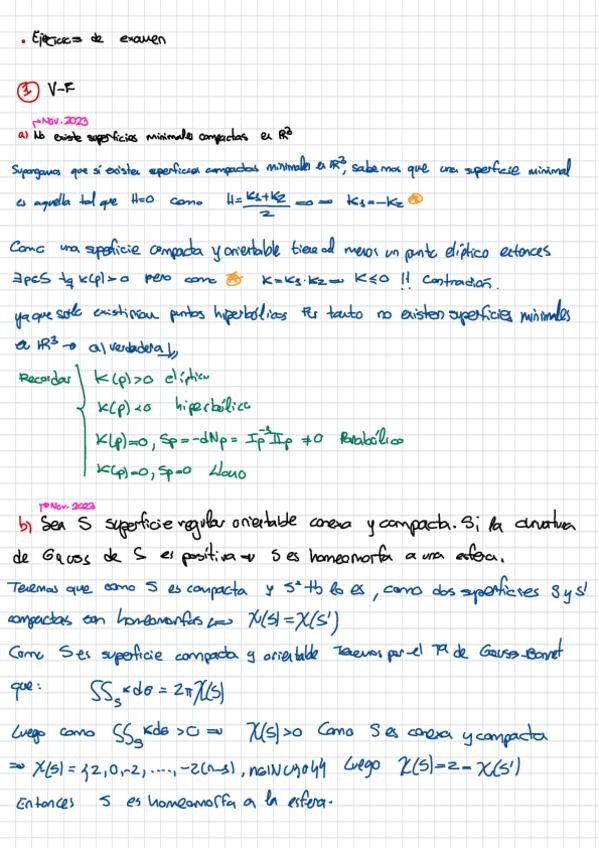 • Ejercicios de examen
① V-F
1º Nov. 2023
a) No existe superficies minimales compactas en ℝ³
Supongamos que sí existen superficies compactas minimales en ℝ³, sabemos que una superficie minimal
es aquella tal que H=0 como H = (K₁+K₂)/2 =0 ⇒ K₁=-K₂ ⊛
Como una superficie compacta y orientable tiene al menos un punto elíptico entonces
∃p∈S tq K(p)>0 pero como ⊛ K=K₁·K₂ ⇒ K≤0 !! Contradicción.
ya que solo existirían puntos hiperbólicos Por tanto no existen superficies minimales
en ℝ³ → a) verdadera
Recordar K(p)>0 elíptico
K(p)<0 hiperbólico
K(p)=0, Sp=-dNp= Ip⁻¹IIp ≠0 Parabólico
K(p)=0, Sp=0 Llano
1º Nov. 2023
b) Sea S superficie regular orientable conexa y compacta. Si la curvatura
de Gauss de S es positiva ⇒ S es homeomorfa a una esfera.
Tenemos que como S es compacta y S² tb lo es, como dos superficies S y S'
compactas son homeomorfas ⇔ χ(S)=χ(S')
Como S es superficie compacta y orientable Tenemos por el Tª de Gauss-Bonnet
que: ∫∫ₛ K dσ = 2π χ(S)
Luego como ∫∫ₛ K dσ >0 ⇒ χ(S)>0 Como S es conexa y compacta
⇒ χ(S) = {2,0,-2, ...., -2(n-1), n∈ℕ∪{0}} Luego χ(S)=2=χ(S')
Entonces S es homeomorfa a la esfera.